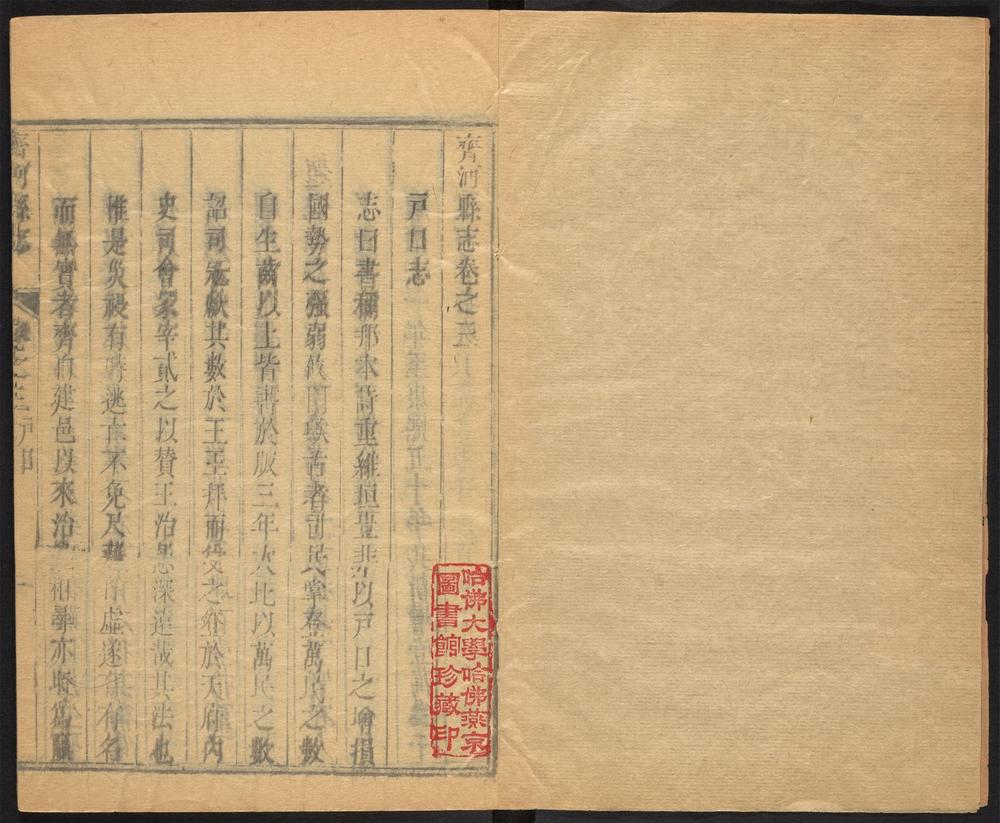 齊河縣志卷之五
戶口志
志曰書稱邦本詩重維垣豈非以戶口之增損
國勢之强弱攸関歟古者司民掌登萬民之數
自生齒以上皆書於版三年大比以萬民之數
詔司寇獻其數於王王拜而受之登於天府內
史司會冢宰貳之以贊王治思深遠哉其法也
惟是災祲有時逃亡不免尺籍虛遂有
而無實者齊自建邑以來治相尋亦
齊河縣志 卷之五戶口 一
哈佛大學哈佛燕京
圖書館珍藏印